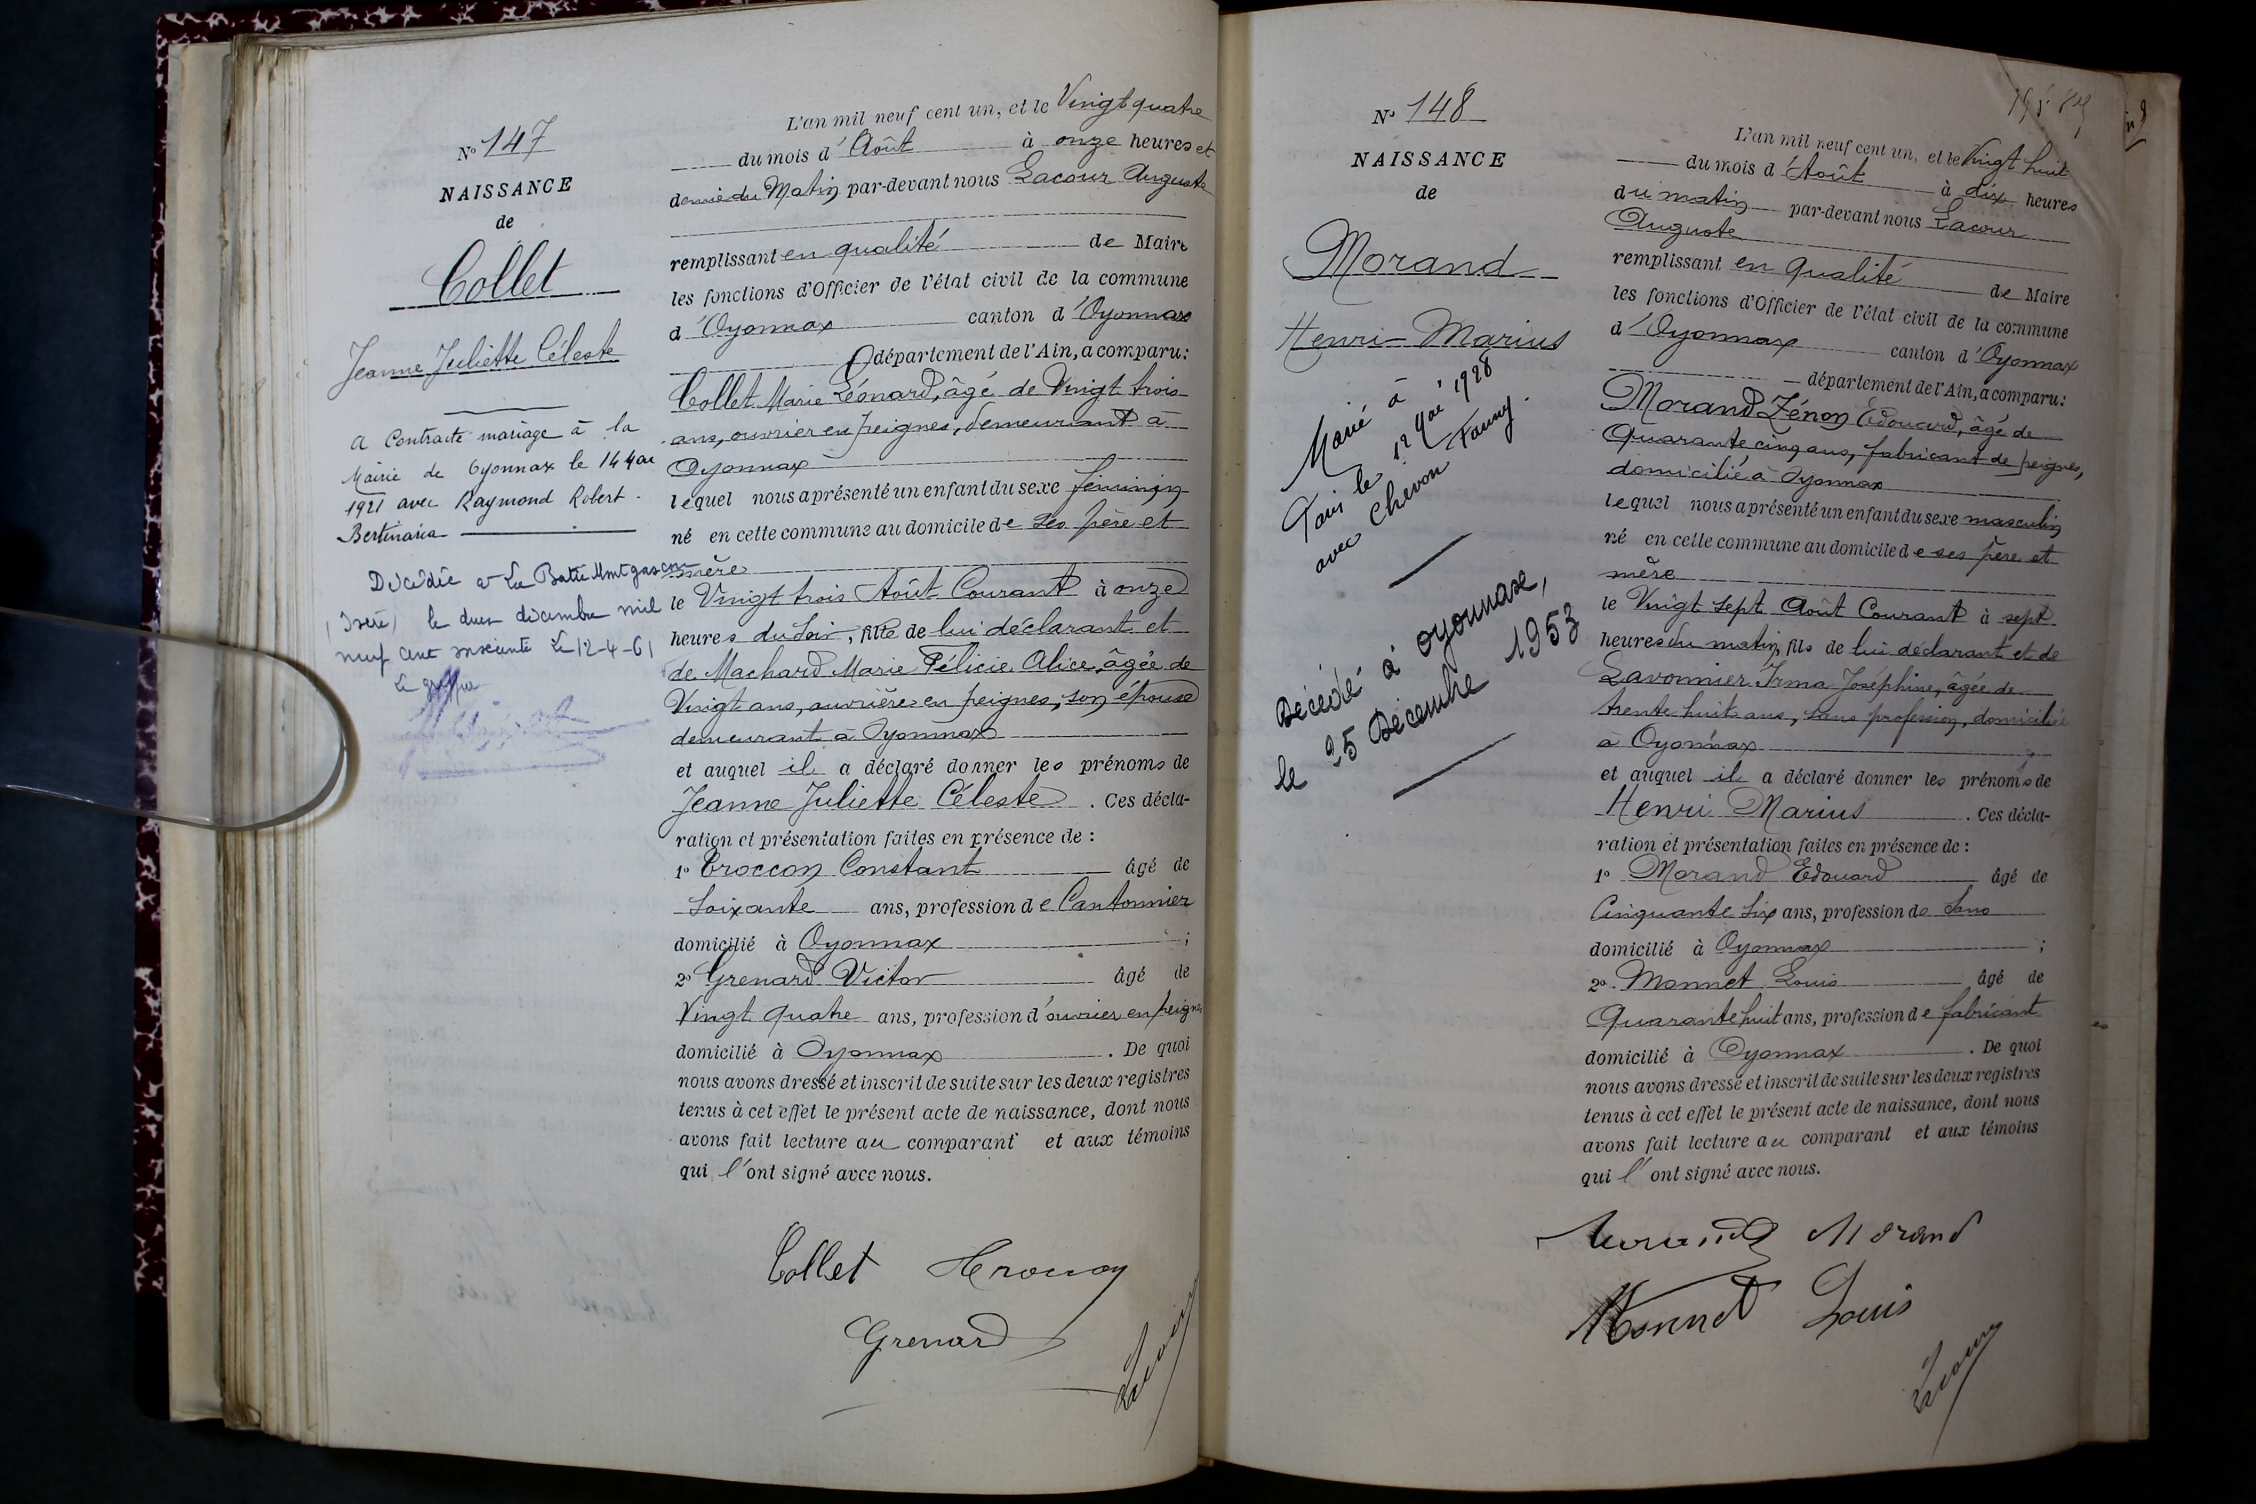 N° 147
NAISSANCE
de
Collet
Jeanne Juliette Céleste
a Contracté mariage à la
Mairie de Oyonnax le 14 Mai
1921 avec Raymond Robert
Bertinaria
Décédée à La Batie Montgascon
(Isère) le deux décembre mil
neuf cent soixante Le 12-4-61
Le greffier
L'an mil neuf cent un, et le Vingt quatre
du mois d'Août à onze heures et
demie du Matin par-devant nous Lacour Auguste
remplissant en qualité de Maire
les fonctions d'Officier de l'état civil de la commune
d'Oyonnax canton d'Oyonnax
département de l'Ain, a comparu:
Collet Marie Léonard, âgé de Vingt trois
ans, ouvrier en peignes, demeurant à
Oyonnax
lequel nous a présenté un enfant du sexe féminin
né en cette commune au domicile de ses père et
mère
le Vingt trois Août Courant à onze
heures du soir, fille de lui déclarant et
de Machard Marie Félicie Alice, âgée de
Vingt ans, ouvrière en peignes, son épouse
demeurant à Oyonnax
et auquel il a déclaré donner les prénoms de
Jeanne Juliette Céleste. Ces décla-
ration et présentation faites en présence de :
1° Troccon Constant âgé de
Soixante ans, profession de Cantonnier
domicilié à Oyonnax ;
2° Grenard Victor âgé de
Vingt quatre ans, profession d'ouvrier en peignes
domicilié à Oyonnax. De quoi
nous avons dressé et inscrit de suite sur les deux registres
tenus à cet effet le présent acte de naissance, dont nous
avons fait lecture au comparant et aux témoins
qui l'ont signé avec nous.
Collet
Grenard
N° 148
NAISSANCE
de
Morand
Henri Marius
Marié à
Paris le 12 Mai 1928
avec Chevron Fanny.
Décédé à Oyonnax,
le 25 Décembre 1953
L'an mil neuf cent un, et le Vingt huit
du mois d'Août à dix heures
du matin par-devant nous Lacour
Auguste
remplissant en qualité de Maire
les fonctions d'Officier de l'état civil de la commune
d'Oyonnax canton d'Oyonnax
département de l'Ain, a comparu:
Morand Zénon Edouard, âgé de
Quarante cinq ans, fabricant de peignes,
domicilié à Oyonnax
lequel nous a présenté un enfant du sexe masculin
né en cette commune au domicile de ses père et
mère
le Vingt sept Août Courant à sept
heures du matin, fils de lui déclarant et de
Lavonnier Irma Joséphine, âgée de
trente huit ans, sans profession, domiciliée
à Oyonnax
et auquel il a déclaré donner les prénoms de
Henri Marius. Ces décla-
ration et présentation faites en présence de :
1° Morand Edouard âgé de
Cinquante six ans, profession de Sans
domicilié à Oyonnax ;
2° Monnet Louis âgé de
Quarante huit ans, profession de fabricant
domicilié à Oyonnax. De quoi
nous avons dressé et inscrit de suite sur les deux registres
tenus à cet effet le présent acte de naissance, dont nous
avons fait lecture au comparant et aux témoins
qui l'ont signé avec nous.
Morand Morand
Monnet Louis
Lacour